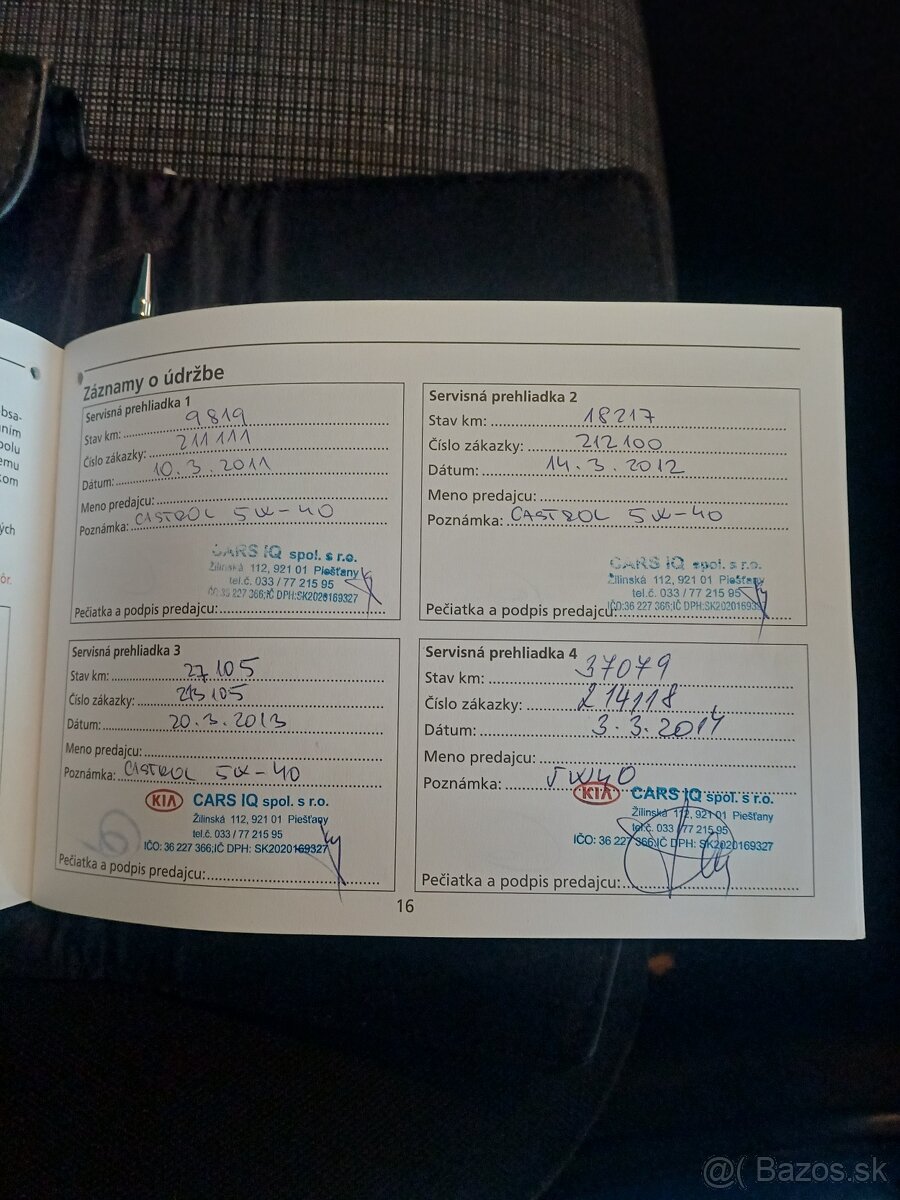 Záznamy o údržbe
Servisná prehliadka 1
Stav km: 9819
Číslo zákazky: 211111
Dátum: 10.3.2011
Meno predajcu:
Poznámka: CASTROL 5W-40
CARS IQ spol. s r.o.
Žilinská 112, 921 01 Piešťany
tel.č. 033 / 77 215 95
IČO:36 227 366;IČ DPH:SK2020169327
Pečiatka a podpis predajcu:
Servisná prehliadka 2
Stav km: 18217
Číslo zákazky: 212100
Dátum: 14.3.2012
Meno predajcu:
Poznámka: CASTROL 5W-40
CARS IQ spol. s r.o.
Žilinská 112, 921 01 Piešťany
tel.č. 033 / 77 215 95
IČO:36 227 366;IČ DPH:SK2020169327
Pečiatka a podpis predajcu:
Servisná prehliadka 3
Stav km: 27105
Číslo zákazky: 213105
Dátum: 20.3.2013
Meno predajcu:
Poznámka: CASTROL 5W-40
KIA CARS IQ spol. s r.o.
Žilinská 112, 921 01 Piešťany
tel.č. 033 / 77 215 95
IČO: 36 227 366;IČ DPH: SK2020169327
Pečiatka a podpis predajcu:
Servisná prehliadka 4
Stav km: 37079
Číslo zákazky: 214118
Dátum: 3.3.2014
Meno predajcu:
Poznámka: 5W40
KIA CARS IQ spol. s r.o.
Žilinská 112, 921 01 Piešťany
tel.č. 033 / 77 215 95
IČO: 36 227 366;IČ DPH: SK2020169327
Pečiatka a podpis predajcu:
16
@( Bazos.sk